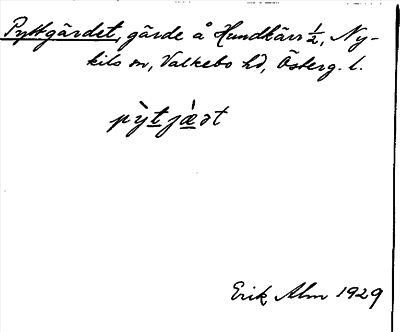 Pyttgärdet, gärde å Hundkärr ½, Ny-
kils sn, Valkebo hd, Österg. l.
pỳtjæ̀ət
Erik Alm 1929